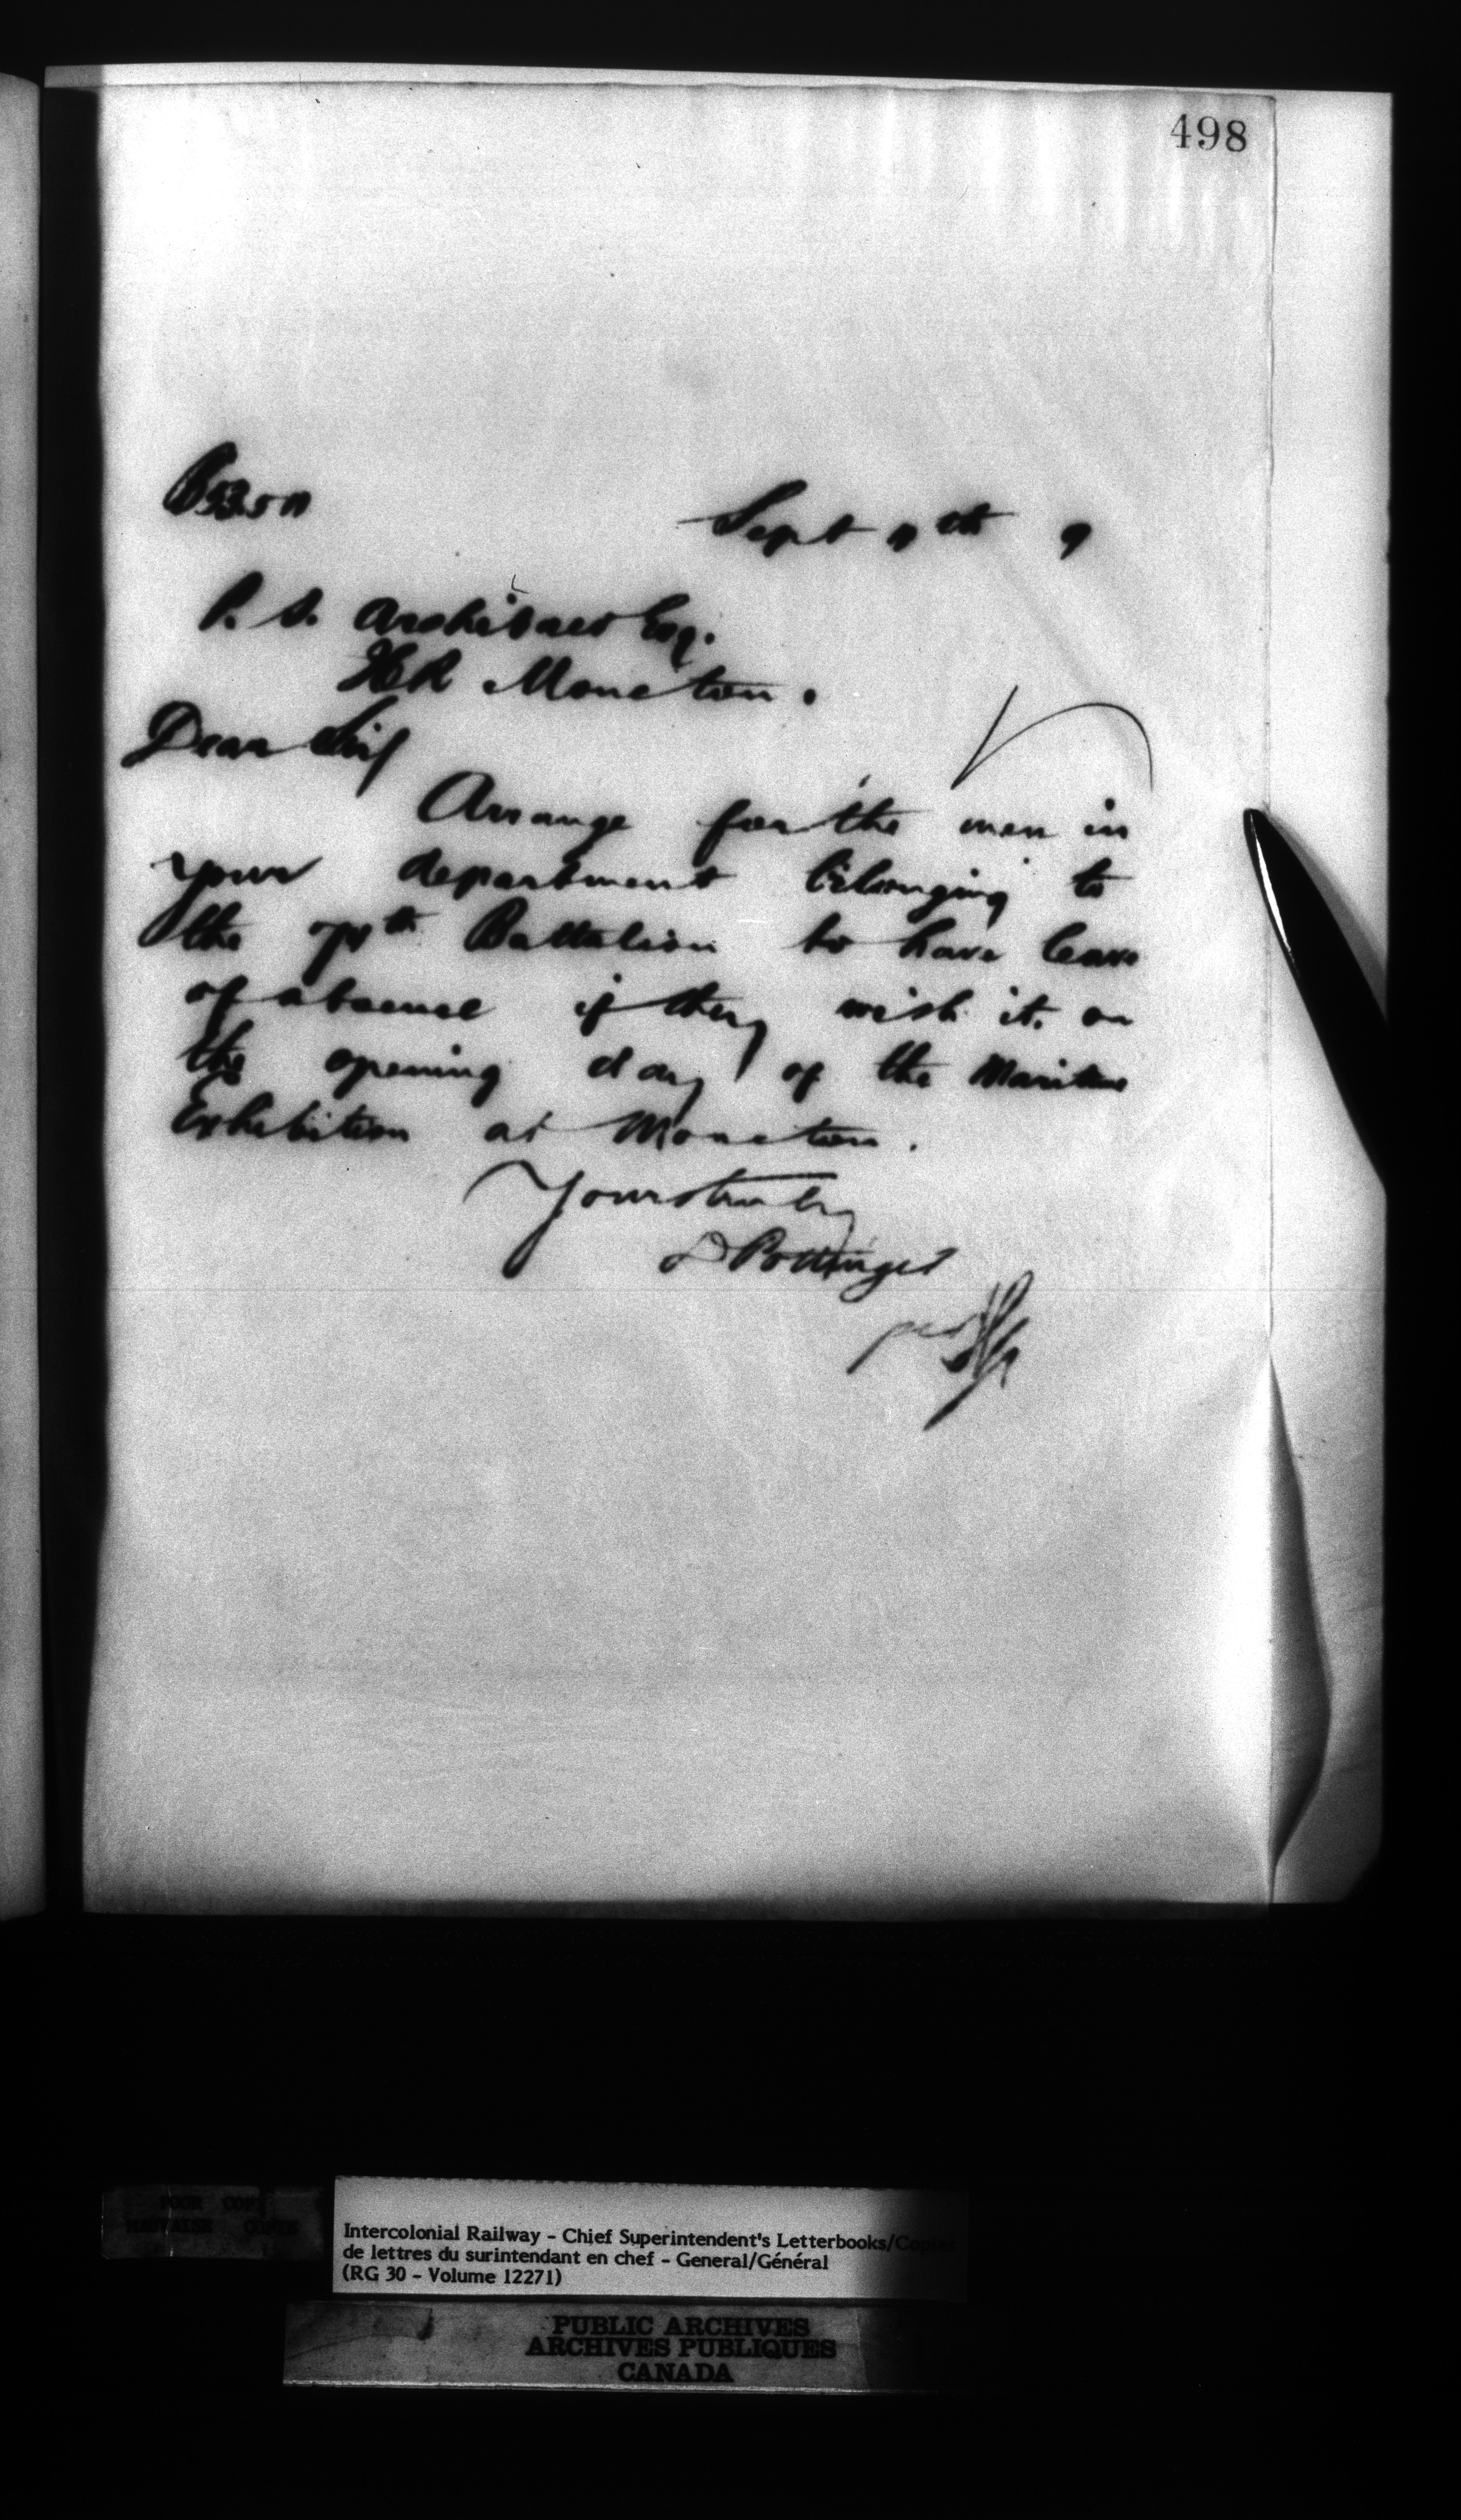 498
Sept 11th 9
P. S. Archibald Esq.
ICR Moncton.
Dear Sir
Arrange for the men in
your department belonging to
the 74th Battalion to have leave
of absence if they wish it. on
the opening day of the Maritime
Exhibition at Moncton.
Yours truly
D Pottinger
per
POOR COPY
MAUVAISE COPIE
Intercolonial Railway - Chief Superintendent's Letterbooks/Copies
de lettres du surintendant en chef - General/Général
(RG 30 - Volume 12271)
PUBLIC ARCHIVES
ARCHIVES PUBLIQUES
CANADA